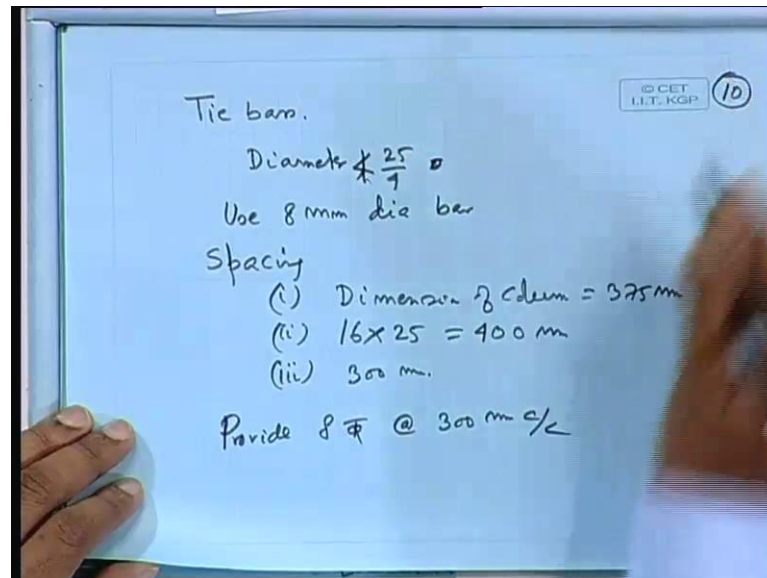 © CET
I.I.T. KGP
10
Tie bars.
Diameter ≮ 25/4
Use 8 mm dia bar
Spacing
(i) Dimension of Column = 375 mm
(ii) 16 × 25 = 400 mm
(iii) 300 m.
Provide 8 Φ @ 300 mm c/c